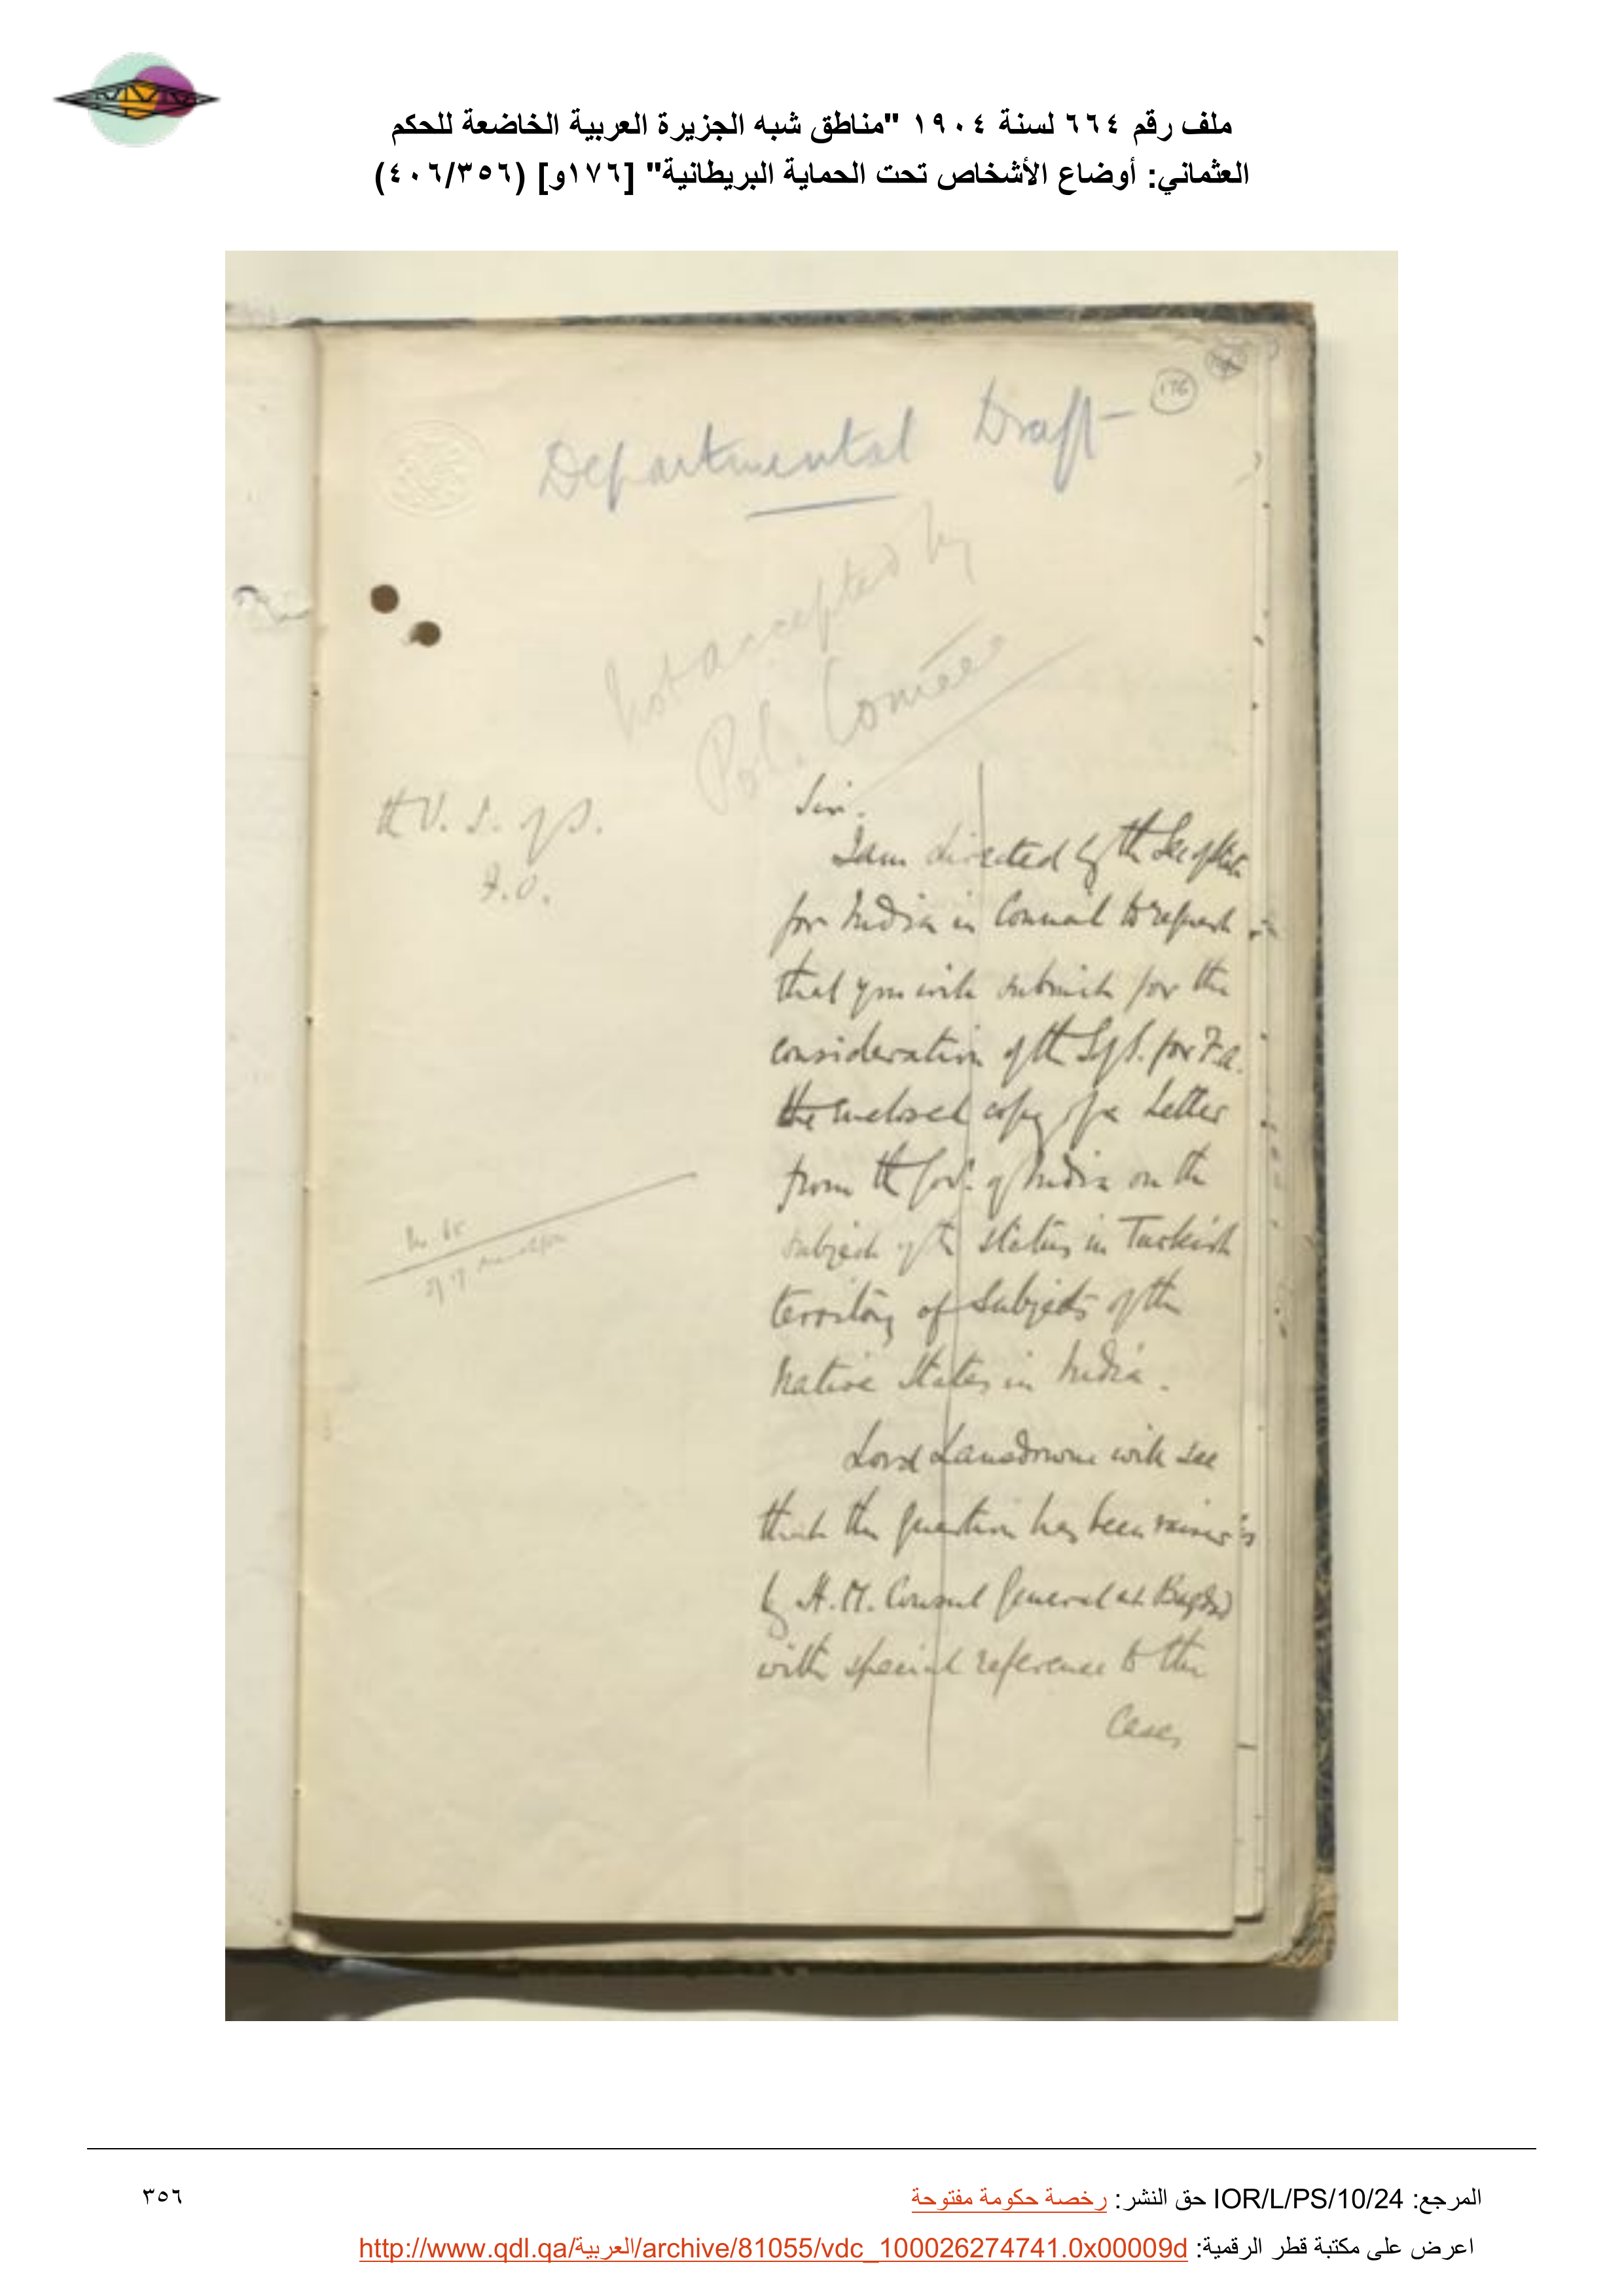 ملف رقم ٦٦٤ لسنة ١٩٠٤ "مناطق شبه الجزيرة العربية الخاضعة للحكم
العثماني: أوضاع الأشخاص تحت الحماية البريطانية" [١٧٦و] (٤٠٦/٣٥٦)
176
Departmental Draft
Not accepted by
Pol. Comtee
th U. S. of S.
F.O.
Sir.
I am directed by th Sec of State
for India in Council to request
that you will submit for the
consideration of th S of S. for F.A.
the enclosed copy of a Letter
from th Govt. of India on the
subject of th status in Turkish
territory of Subjects of the
Native States in India.
Lord Lansdowne will see
that the question has been raised
by H.M. Consul General at Bagdad
with special reference to the
Cases
المرجع: IOR/L/PS/10/24 حق النشر: رخصة حكومة مفتوحة
٣٥٦
اعرض على مكتبة قطر الرقمية: http://www.qdl.qa/العربية/archive/81055/vdc_100026274741.0x00009d